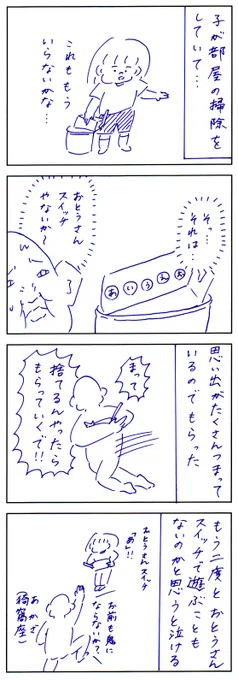 子が部屋の掃除を
していて…
これももう
いらないかな…
そっ…
それは…
おとうさん
スイッチ
やないか〜
あいうえお
思い出がたくさんつまって
いるのでもらった
まって
捨てるんやったら
もらっていくで!!
もう二度とおとうさん
スイッチで遊ぶことも
ないのかと思うと泣ける
おとうさんスイッチ
「あ」!!
お前も鬼に
ならないか?
あかざ
(猗窩座)